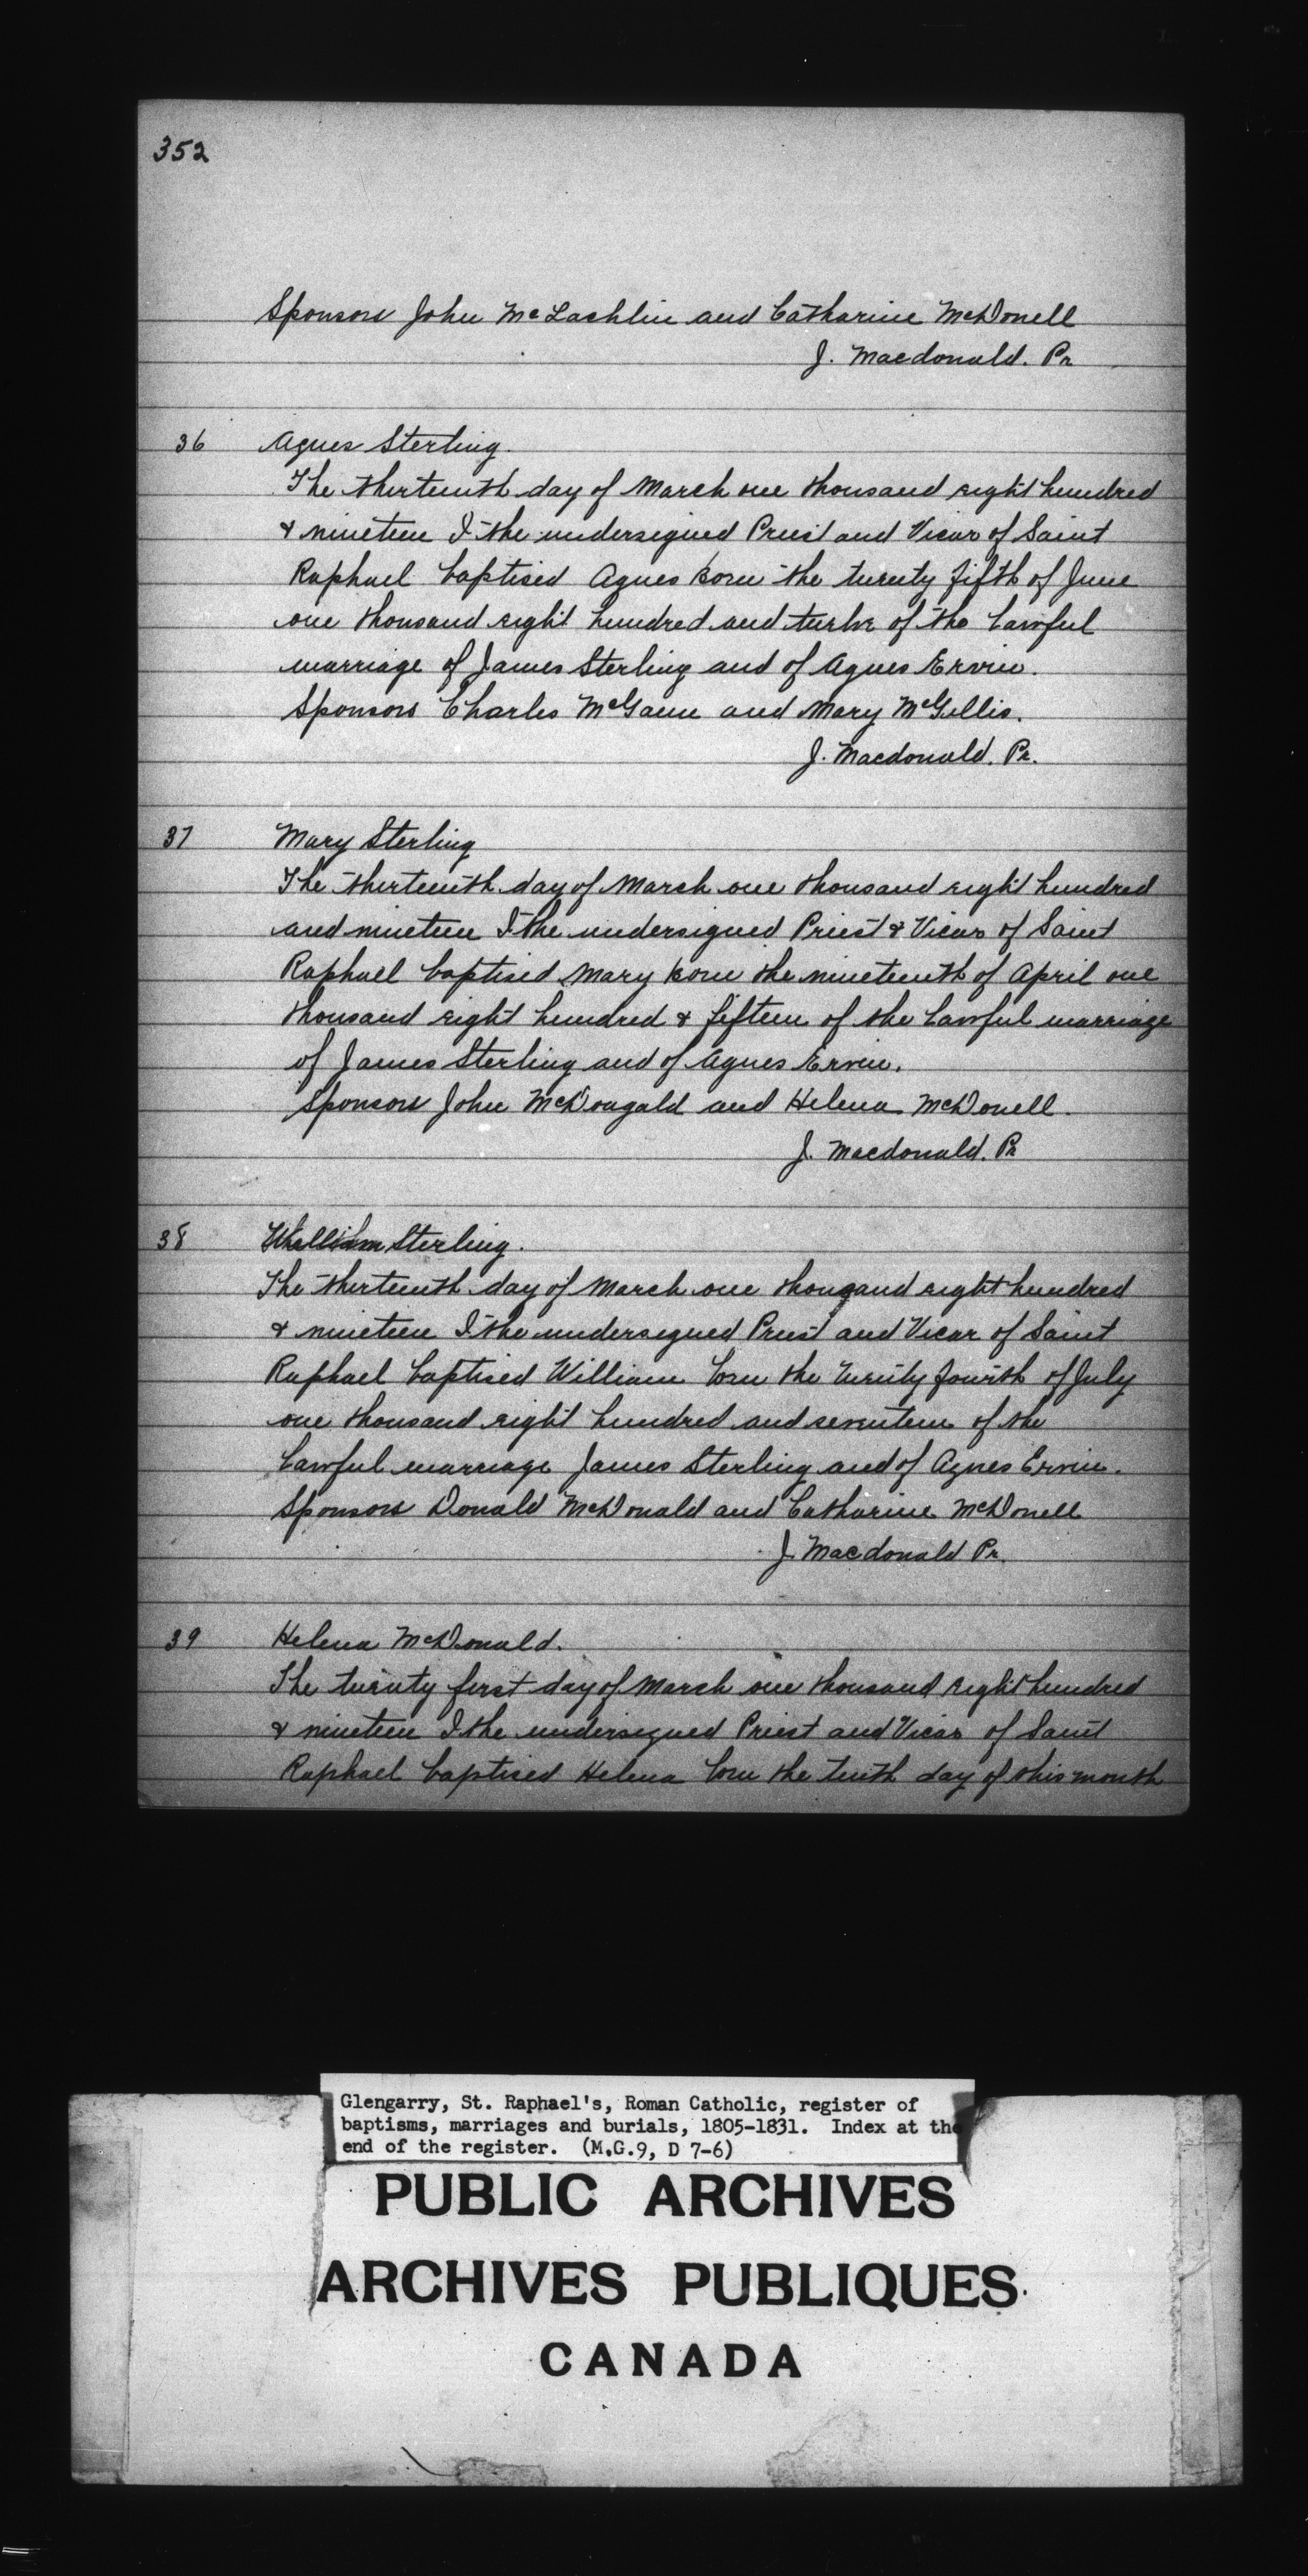 352
Sponsors John McLachlin and Catharine McDonell
J. Macdonald. Pr
36 Agnes Sterling.
The thirteenth day of March one thousand eight hundred
& nineteen I the undersigned Priest and Vicar of Saint
Raphael baptised Agnes born the twenty fifth of June
one thousand eight hundred and twelve of the lawful
marriage of James Sterling and of Agnes Ervin.
Sponsors Charles McGann and Mary McGillis.
J. Macdonald. Pr.
37 Mary Sterling
The thirteenth day of March one thousand eight hundred
and nineteen I the undersigned Priest & Vicar of Saint
Raphael baptised Mary born the nineteenth of April one
thousand eight hundred & fifteen of the lawful marriage
of James Sterling and of Agnes Ervin.
Sponsors John McDougald and Helena McDonell.
J. Macdonald. Pr
38 William Sterling.
The thirteenth day of March one thousand eight hundred
& nineteen I the undersigned Priest and Vicar of Saint
Raphael baptised William born the twenty fourth of July
one thousand eight hundred and seventeen of the
lawful marriage James Sterling and of Agnes Ervin.
Sponsors Donald McDonald and Catharine McDonell
J. Macdonald Pr.
39 Helena McDonald.
The twenty first day of March one thousand eight hundred
& nineteen I the undersigned Priest and Vicar of Saint
Raphael baptised Helena born the tenth day of this month
Glengarry, St. Raphael's, Roman Catholic, register of
baptisms, marriages and burials, 1805-1831. Index at the
end of the register. (M.G.9, D 7-6)
PUBLIC ARCHIVES
ARCHIVES PUBLIQUES
CANADA